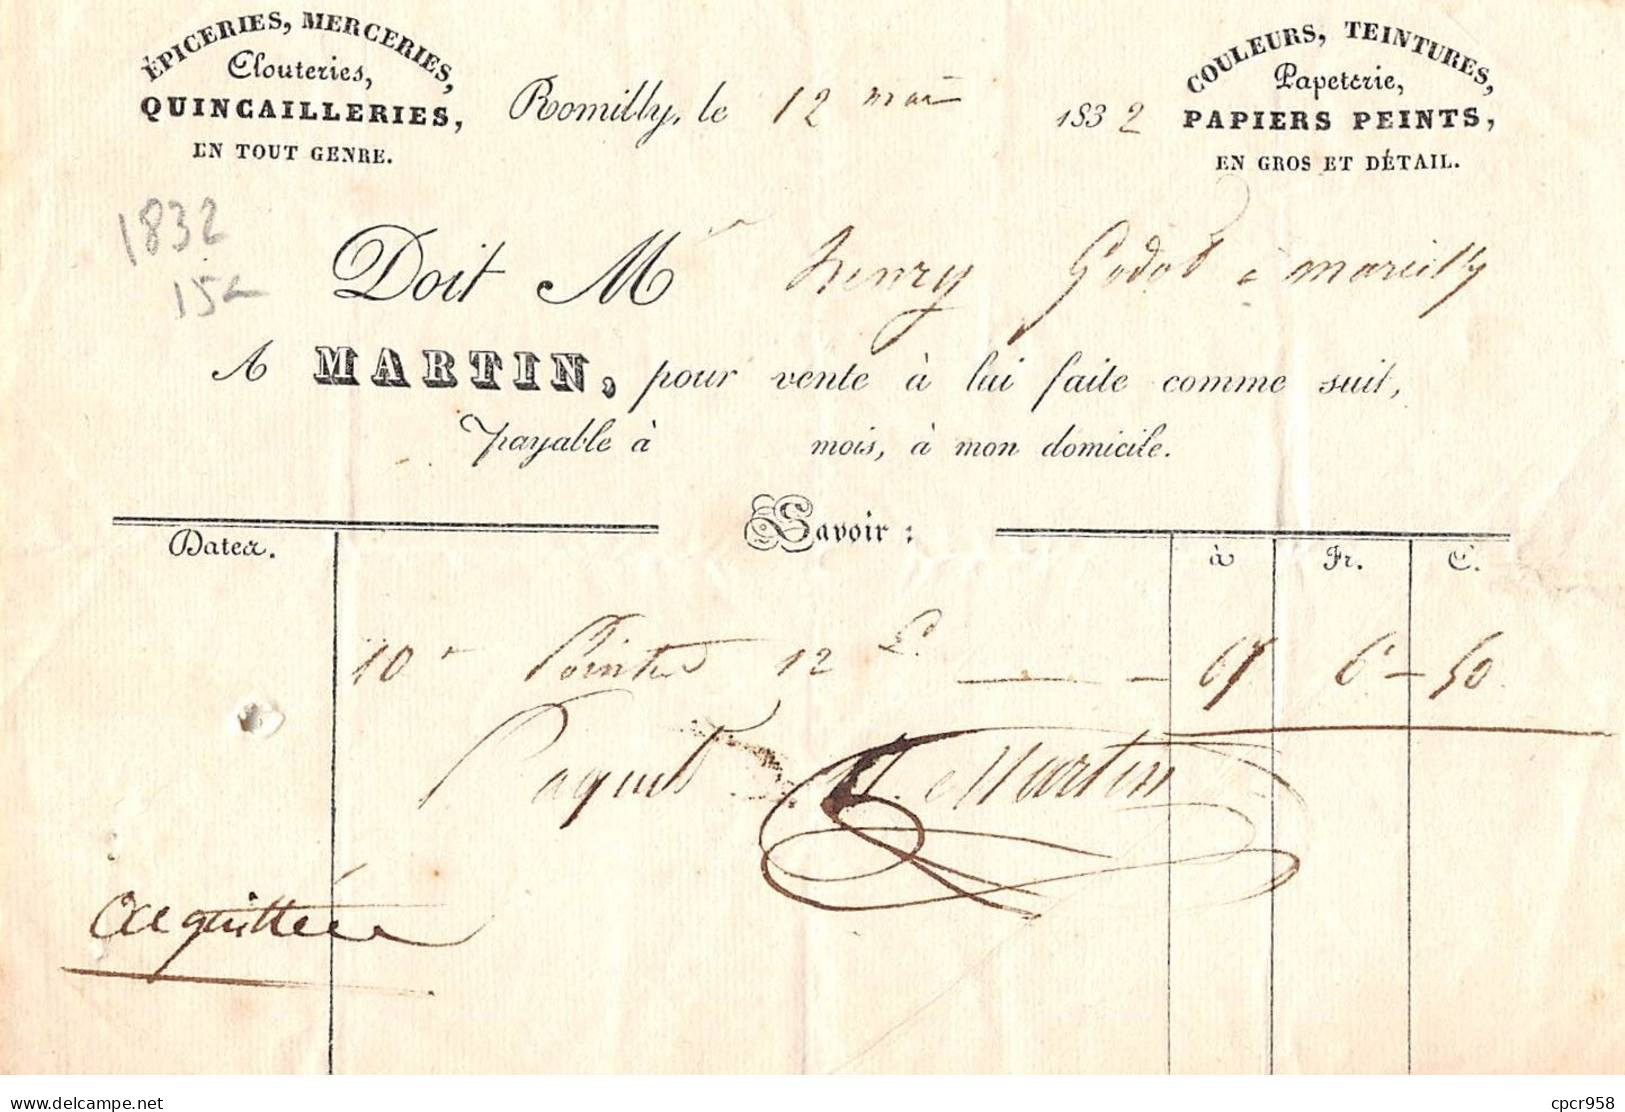 ÉPICERIES, MERCERIES,
Clouteries,
QUINCAILLERIES,
EN TOUT GENRE.
Romilly, le 12 mai 1832
COULEURS, TEINTURES,
Papeterie,
PAPIERS PEINTS,
EN GROS ET DÉTAIL.
1832
15
Doit Mr henry Godot à mareilly
A MARTIN, pour vente à lui faite comme suit,
payable à mois, à mon domicile.
Savoir :
Dates. à Fr. C.
10 Pointes 12 65 6 - 50
Martin
Acquittée
www.delcampe.net
cpcr958